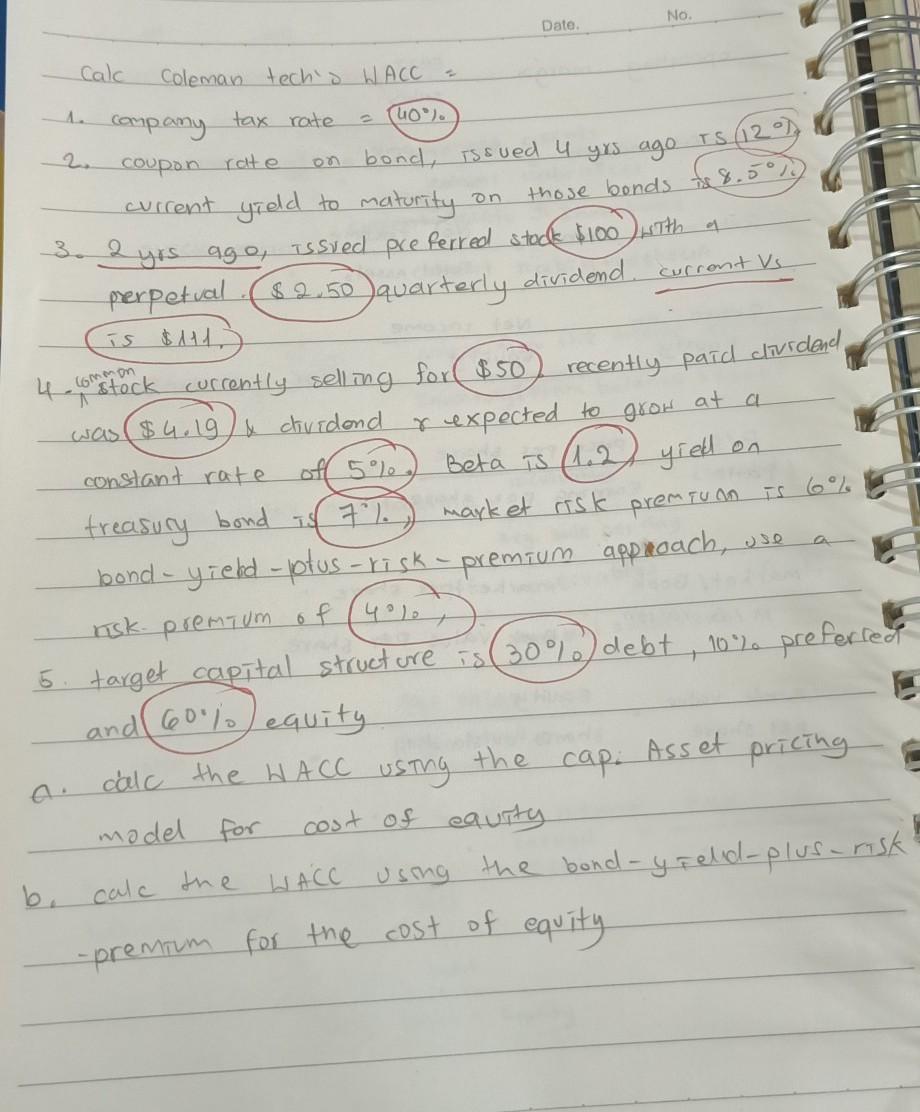 Date.
No.
Calc Coleman tech's WACC =
1. company tax rate = 40%
2. coupon rate on bond, issued 4 yrs ago is 12%
current yield to maturity on those bonds is 8.5%
3. 2 yrs ago, issued preferred stock $100 with a
perpetual $2.50 quarterly dividend. current Vs
is $111.
4. common stock currently selling for $50 recently paid dividend
was $4.19 & dividend r expected to grow at a
constant rate of 5%. Beta is 1.2, yield on
treasury bond is 7%, market risk premium is 6%
bond-yield-plus-risk-premium approach, use a
risk-premium of 4%,
5. target capital structure is 30% debt, 10% preferred
and 60% equity
a. calc the WACC using the cap. Asset pricing
model for cost of equity
b. calc the WACC using the bond-yield-plus-risk
-premium for the cost of equity